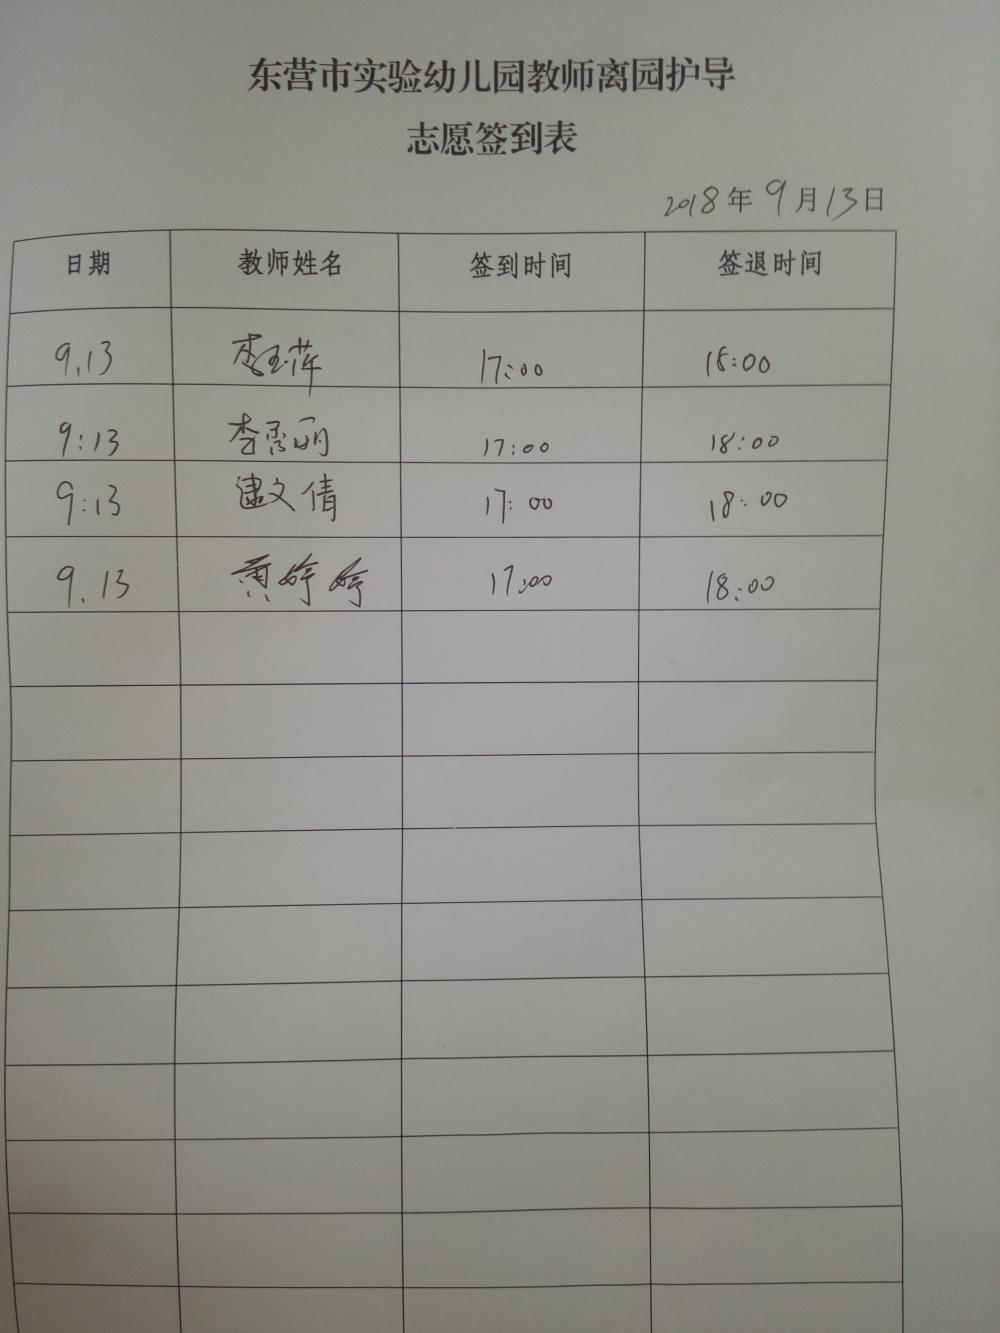 东营市实验幼儿园教师离园护导
志愿签到表
2018年9月13日
日期 教师姓名 签到时间 签退时间
9.13 李玉萍 17:00 18:00
9:13 李秀丽 17:00 18:00
9:13 逮文倩 17:00 18:00
9.13 黄婷婷 17:00 18:00